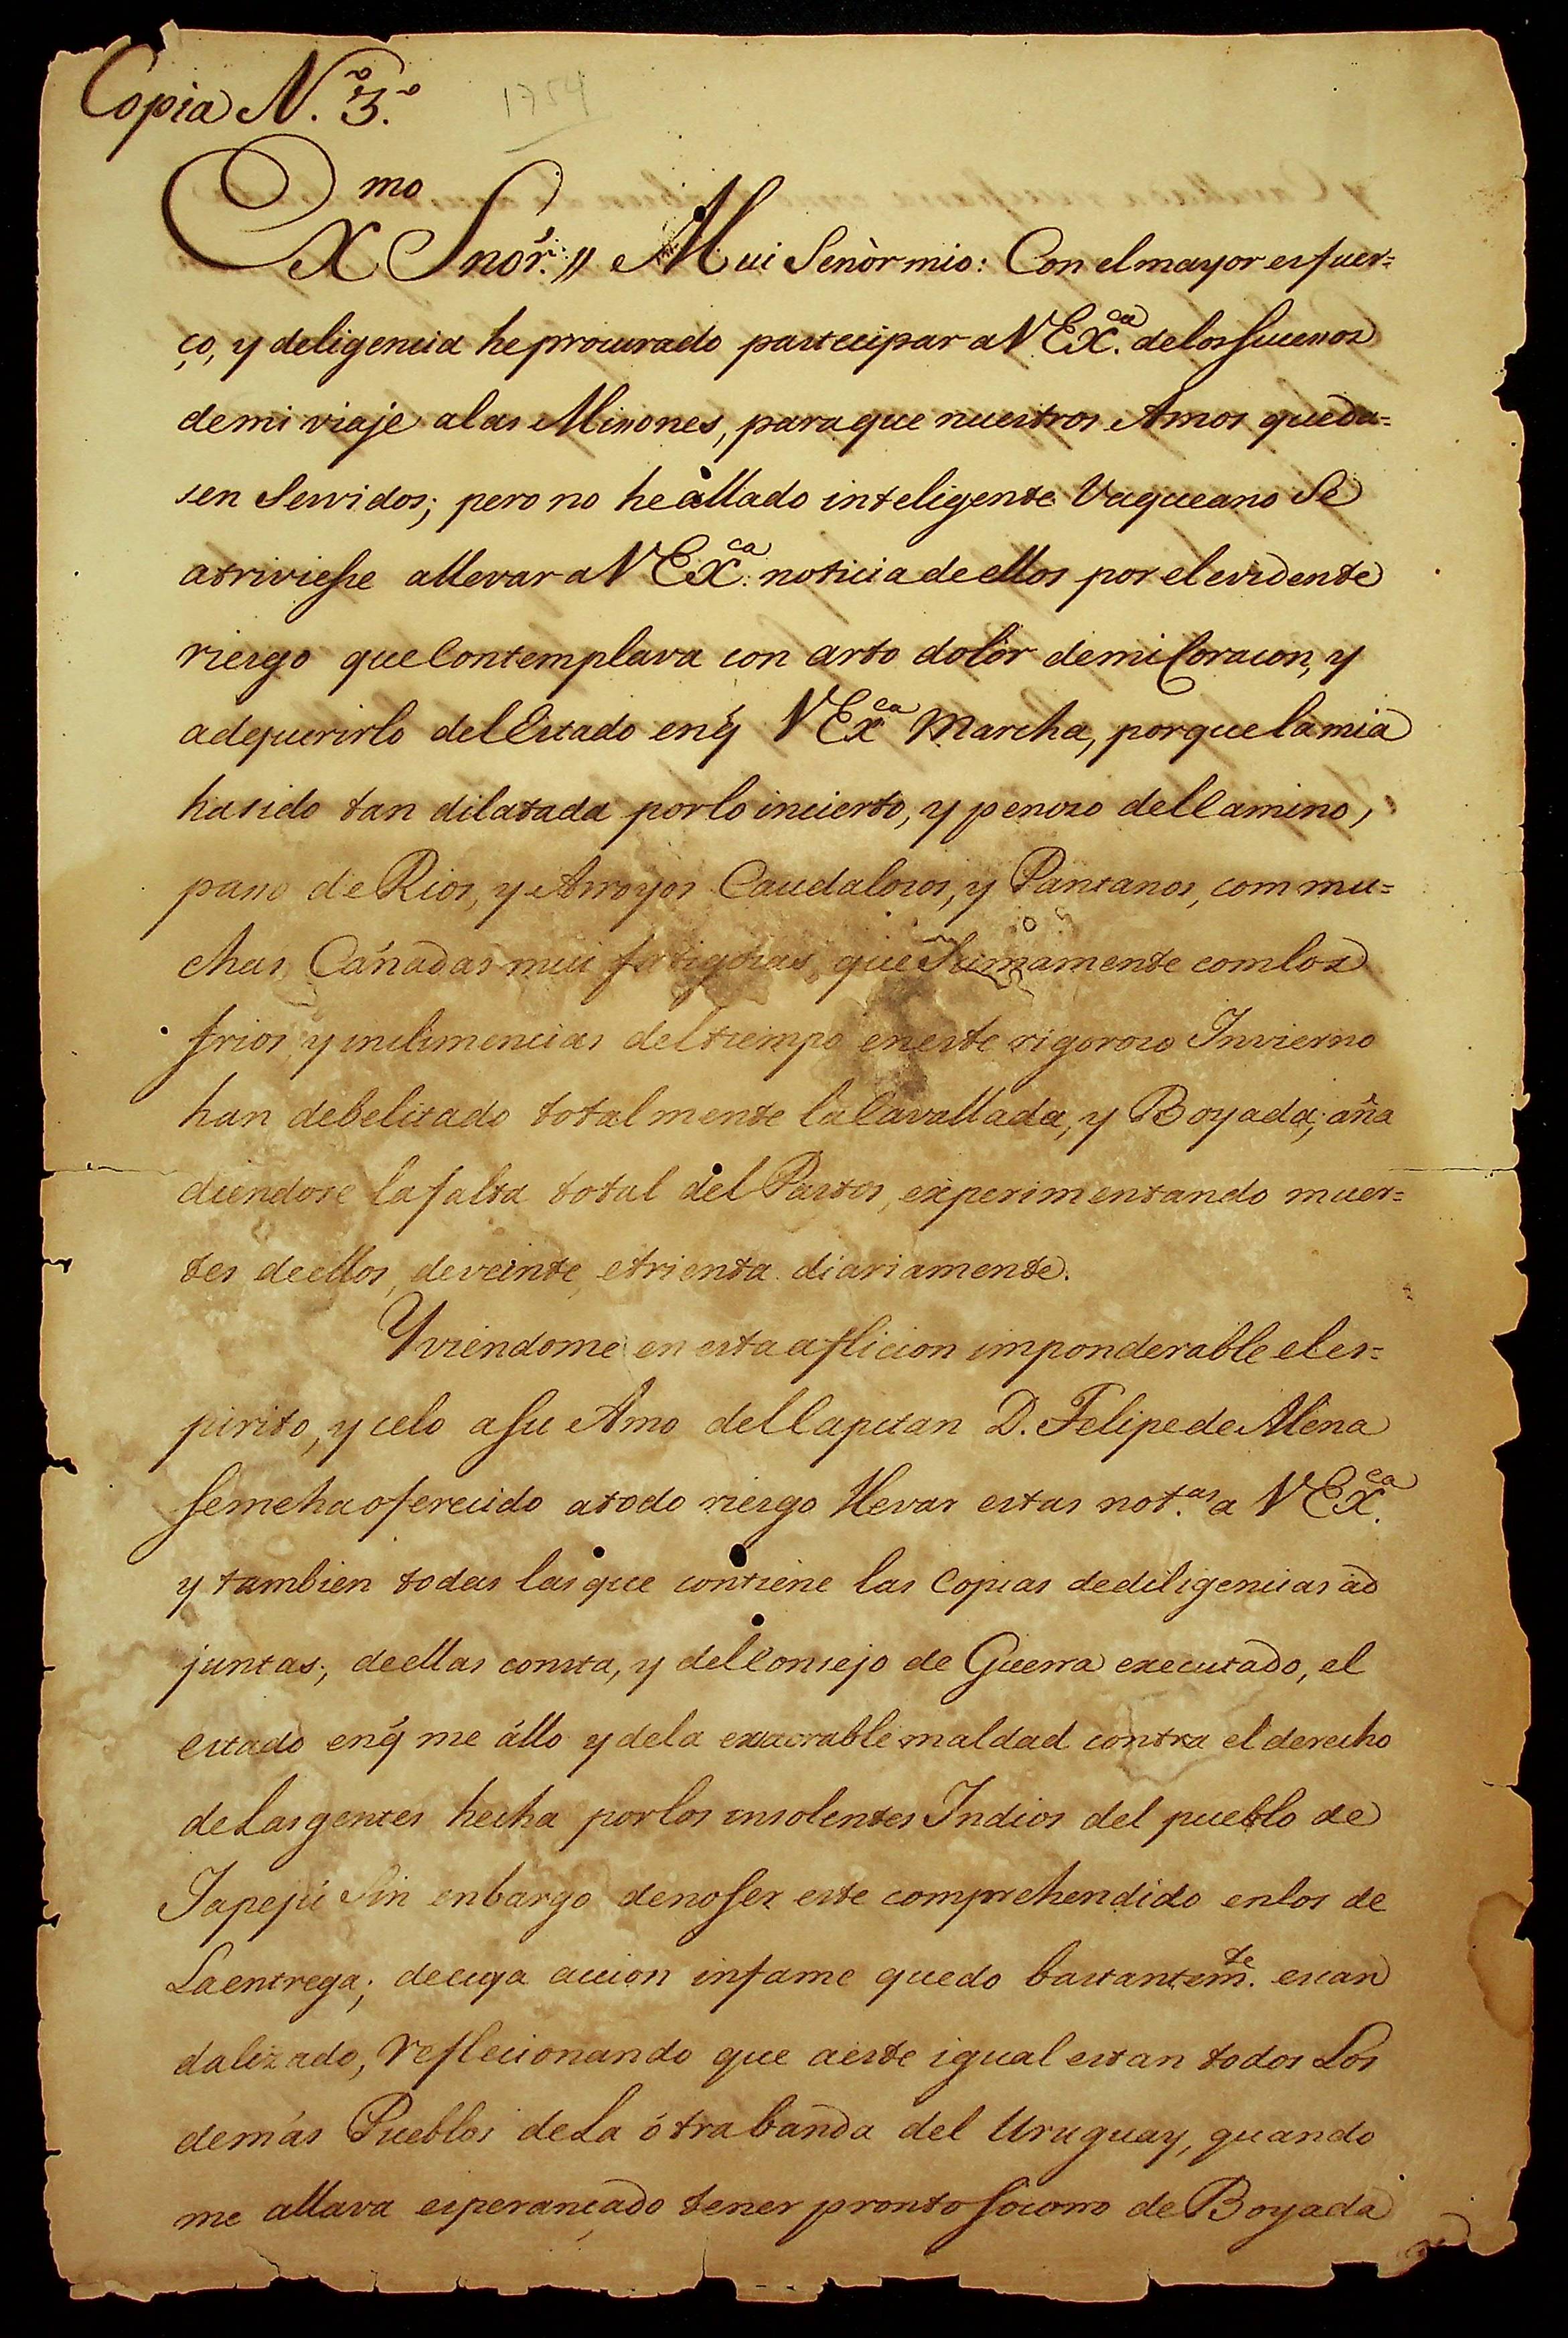 Copia N.º 3.º
1754
Exmo Snór.// Mui Senòr mio: Con el mayor esfuer=
ço, y deligencia he procurado partecipar a V Exca. de los Sucesos
de mi viaje a las Misiones, para que nuestros Amos queda=
sen Servidos; pero no he àllado inteligente Vaqueano Se
atriviesse allevar a V Exca: noticia de ellos por el evidente
riesgo que Contemplava con arto dolòr de mi Coracon, y
adequerirlo del Estado en q̃ V Exca Marcha, por que la mia
ha sido tan dilatada por lo incierto, y penozo del Camino,
paso de Rios, y Arroyos Caudalosos, y Pantanos, com mu=
chas Cañadas mui fatigosas, que Sumamente com los
frios, y inclimencias del tiempo en este rigorozo Invierno
han debelitado totalmente la Cavallada, y Boyada; aña
diendose la falta total del Pastos, experimentando muer=
tes de ellos, de veinte, e trienta diariamente.
Y viéndome en esta aflicion imponderable el es=
pirito, y celo a Su Amo del Capitan D. Felipe de Mena
Se me ha oferecido a todo riesgo llevar estas not.as a V Exca.
y tambien todas las que contiene las Copias de diligencias ad
juntas; de ellas consta, y del Consejo de Guerra executado, el
estado en q̃ me állo y de la exacrable maldad contra el derecho
de Las gentes hecha por los insolentes Indios del pueblo de
Japejú Sin enbargo de no Ser este comprehendido en los de
La entrega; de cuya accion infame quedo bastantemte. escan
dalizado, reflecionando que a este igual estan todos Los
demás Pueblos de La ótra banda del Uruguay, quando
me allava esperançado tener pronto Socorro de Boyada